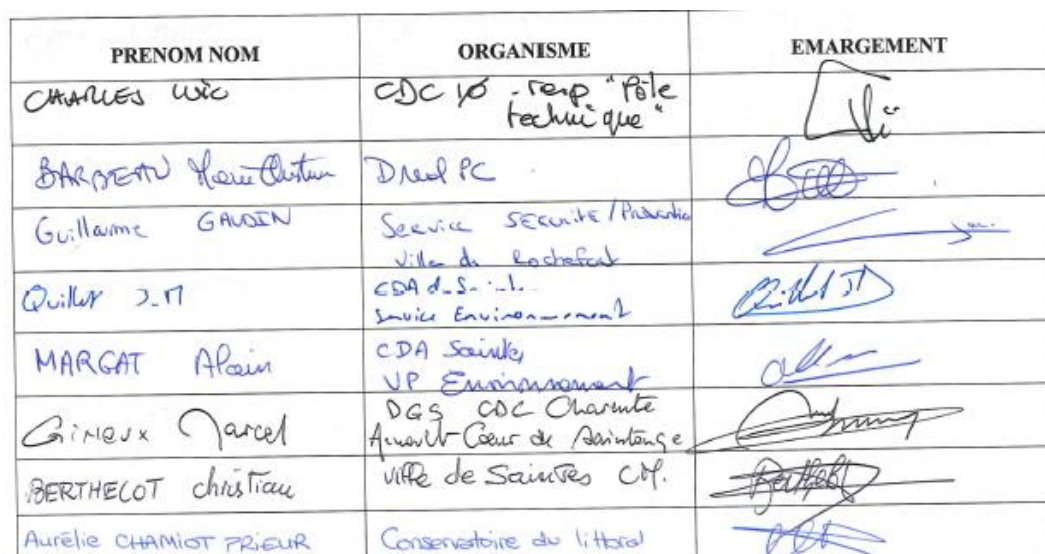 PRENOM NOM ORGANISME EMARGEMENT
CHARLES CDC - resp "Pôle
technique"
BARBEAU Marie Christine Dreal PC
Guillaume GAUDIN Service SECURITE/Prévention
Ville de Rochefort
Quillet J-M CDA
Service Environnement
MARGAT Alain CDA Saintes
VP Environnement
Gireaux Marcel DGS CDC Charente
Arnoult Cœur de Saintonge
BERTHELOT christian ville de Saintes CM.
Aurélie CHAMIOT PRIEUR Conservatoire du littoral